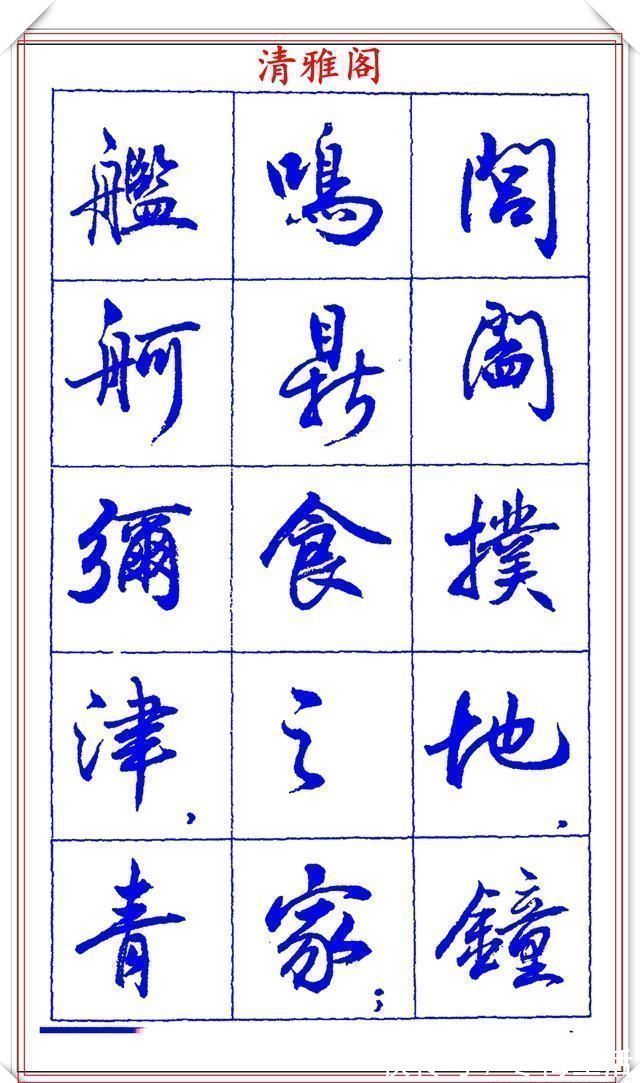 清雅阁
閭閻撲地，鐘
鳴鼎食之家；
舸艦彌津，青